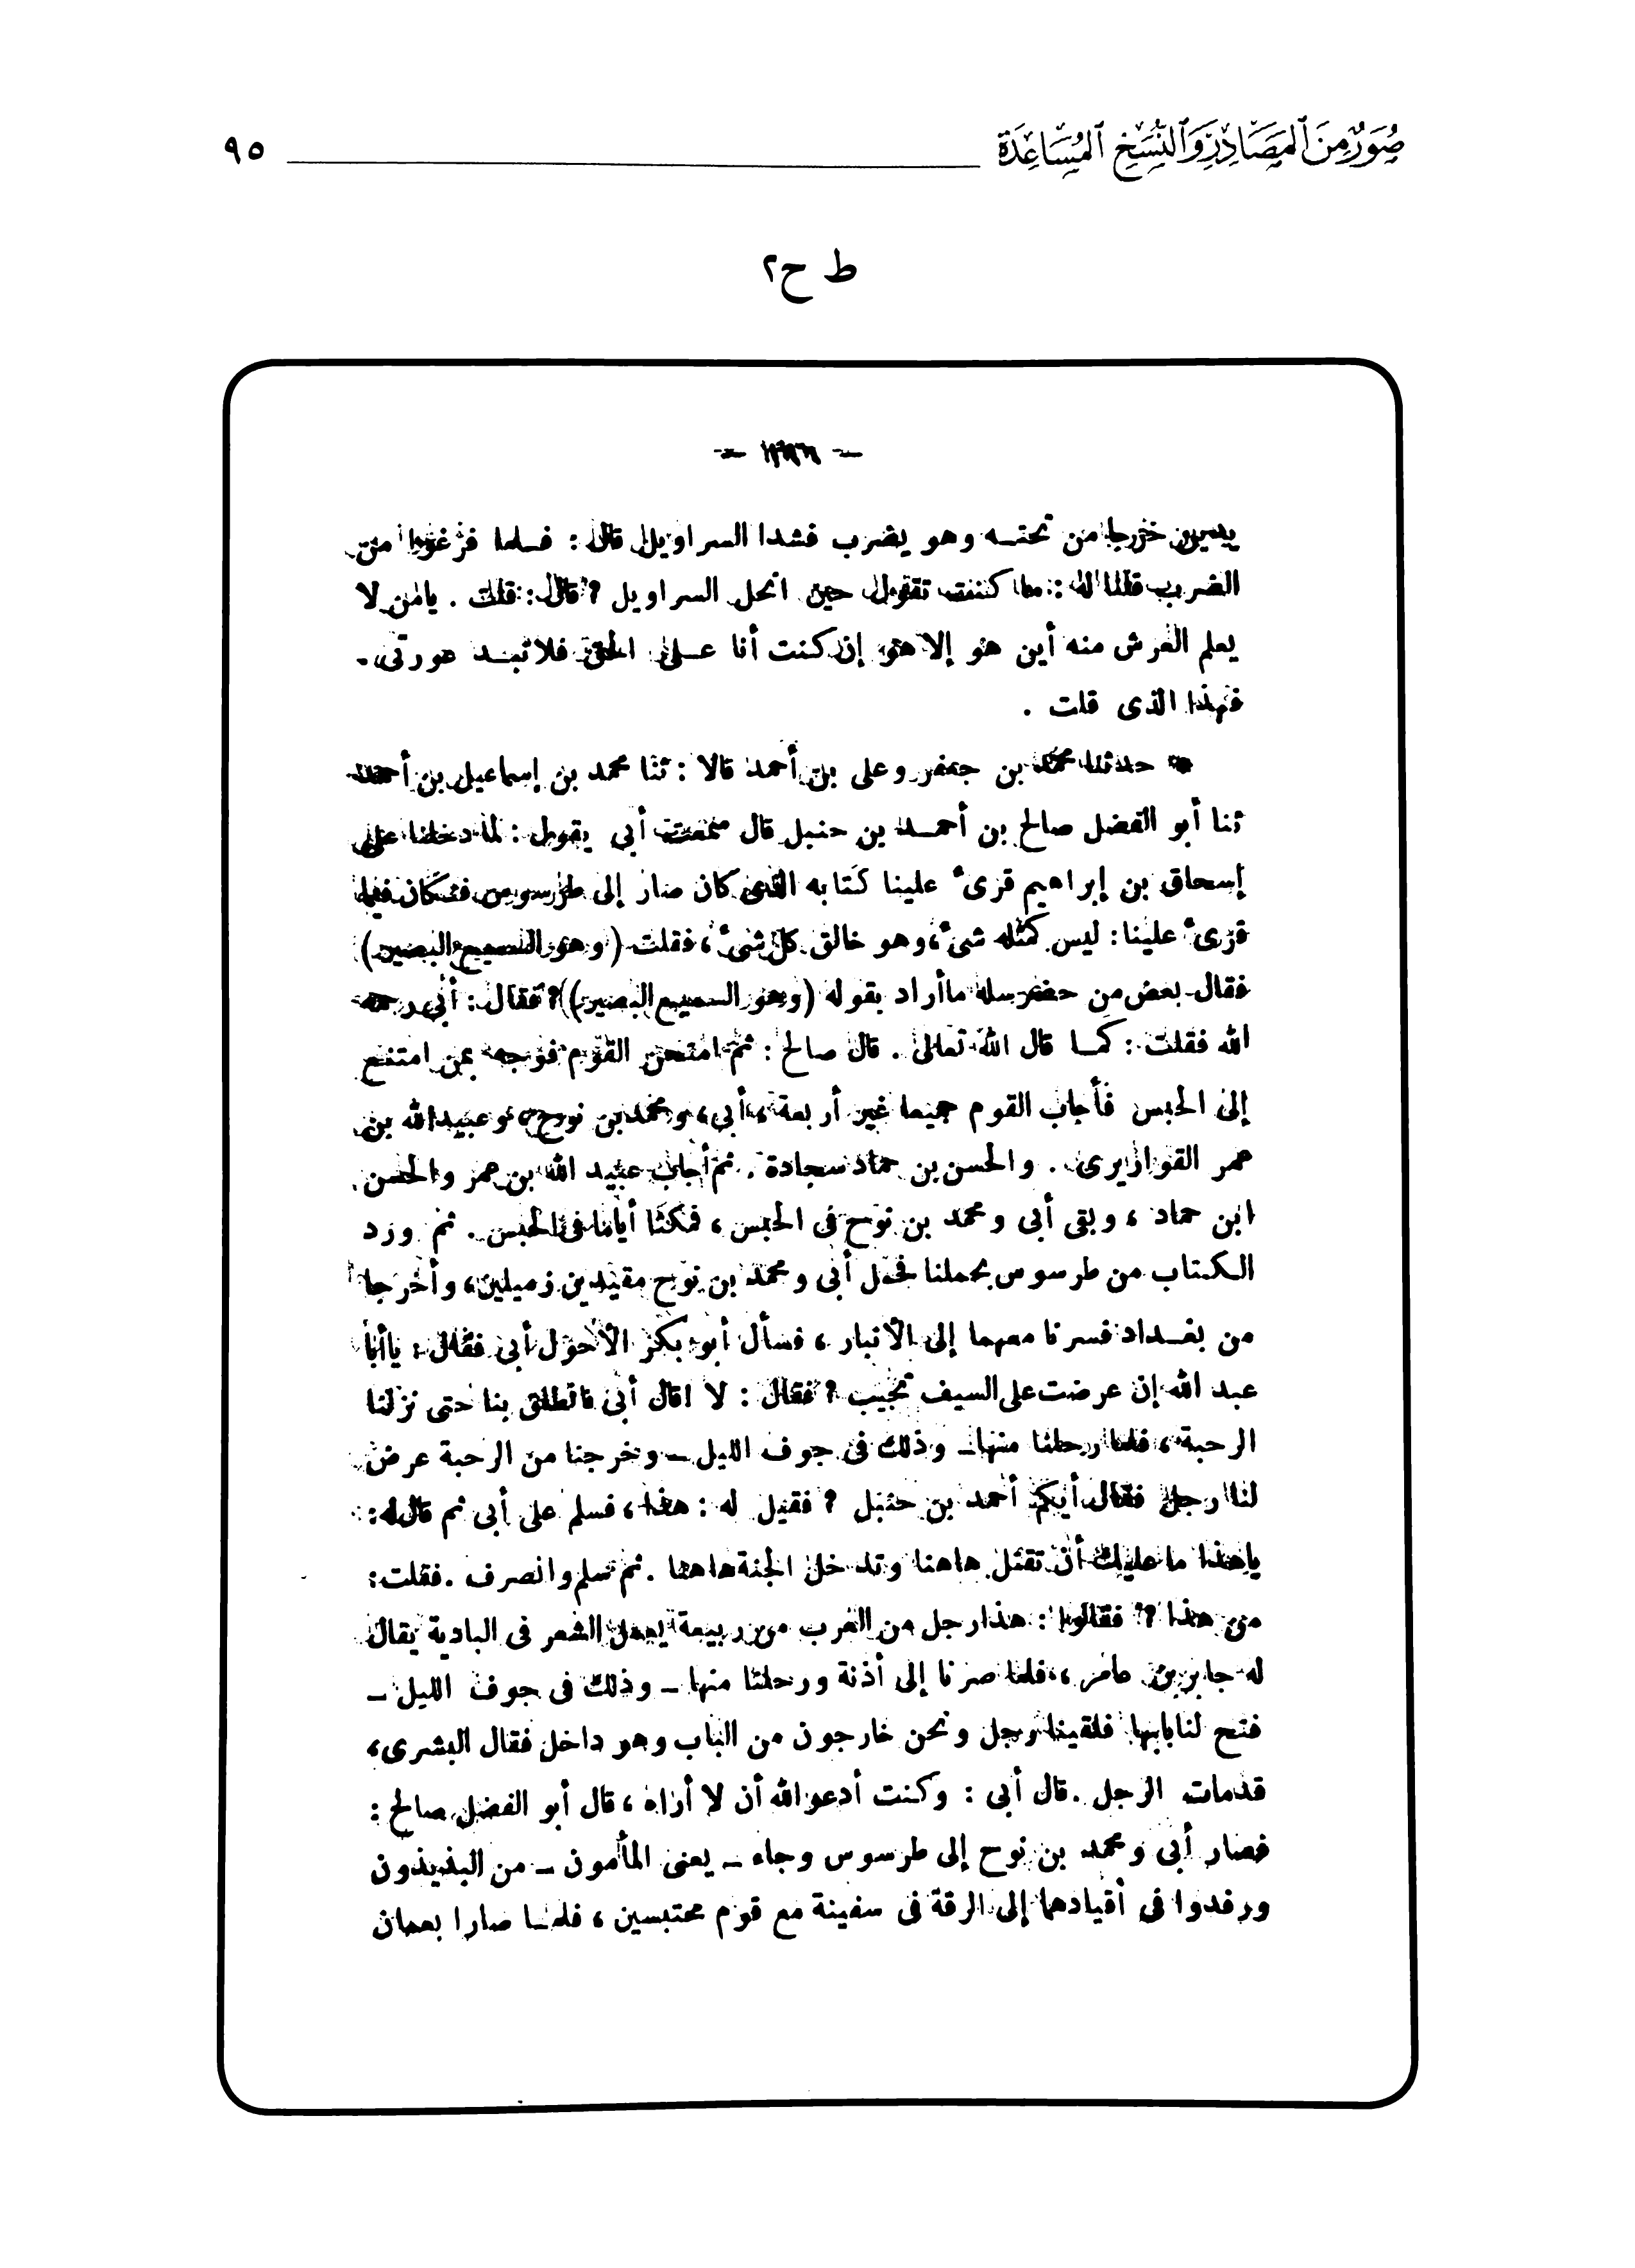 صُوَرٌ مِنَ ٱلْمَصَادِرِ وَٱلنُّسَخِ ٱلْمُسَاعِدَةِ ٩٥
ط ح٢
يدين خرجا من تحتـه وهو يضرب فشدا السراويل قال : فـلما فرغوا من
الضرب قلنا له : ما كنت تقول حين انحل السراويل ؟ قال : قلت . يامن لا
يعلم العرش منه أين هو إلا هو إن كنت أنا عـلى الحق فلا تبـد عورتى .
فهذا الذى قلت .
* حدثنا محمد بن جعفر وعلى بن أحمد قالا : ثنا محمد بن إسماعيل بن أحمد
ثنا أبو الفضل صالح بن أحمـد بن حنبل قال سمعت أبى يقول : لما دخلنا على
إسحاق بن إبراهيم قرىء علينا كتابه الذى كان صار إلى طرسوس فـكان فيما
قرىء علينا : ليس كمثله شىء ، وهو خالق كل شىء ، فقلت (وهو السميع البصير)
فقال بعض من حضر سله ما أراد بقوله (وهو السميع البصير) ؟ فقال : أبى رحمه
الله فقلت : كمـا قال الله تعالى . قال صالح : ثم امتحن القوم فوجه بمن امتنع
إلى الحبس فأجاب القوم جميعا غير أربعة ، أبى ، ومحمد بن نوح ، وعبيد الله بن
عمر القواريرى . والحسن بن حماد سجادة . ثم أجاب عبيد الله بن عمر والحسن
ابن حماد ، وبقى أبى ومحمد بن نوح فى الحبس ، فمكثا أياما فى الحبس . ثم ورد
الكتاب من طرسوس بحملنا فحمل أبى ومحمد بن نوح مقيدين زميلين ، وأخرجا
من بغـداد فسرنا معهما إلى الأنبار ، فسأل أبو بكر الأحول أبى فقال : يا أبا
عبد الله إن عرضت على السيف تجيب ؟ فقال : لا ! قال أبى فانطلق بنا حتى نزلنا
الرحبة ، فلما رحلنا منها ـ وذلك فى جوف الليل ـ وخرجنا من الرحبة عرض
لنا رجل فقال أيكم أحمد بن حنبل ؟ فقيل له : هذا ، فسلم على أبى ثم قال له :
ياهذا ما عليك أن تقتل هاهنا وتدخل الجنة هاهنا . ثم سلم وانصرف . فقلت :
من هذا ؟ فقالوا : هذا رجل من العرب من ربيعة يعمل الشعر فى البادية يقال
له جابر بن عامر ، فلما صرنا إلى أذنة ورحلنا منها ـ وذلك فى جوف الليل ـ
فتح لنا بابها فلقينا رجل ونحن خارجون من الباب وهو داخل فقال البشرى ،
قد مات الرجل . قال أبى : وكنت أدعو الله أن لا أراه ، قال أبو الفضل صالح :
فصار أبى ومحمد بن نوح إلى طرسوس وجاء ـ يعنى المأمون ـ من البذيذون
ورفدوا فى أقيادهما إلى الرقة فى سفينة مع قوم محتبسين ، فلمـا صارا بعمان